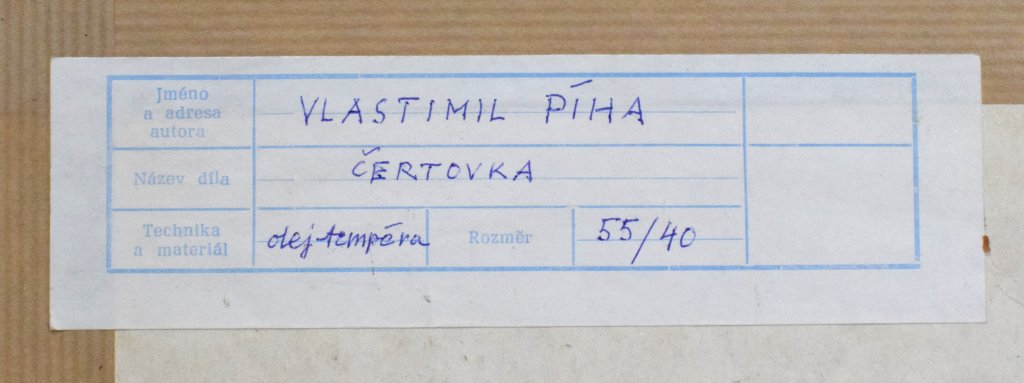 Jméno
a adresa
autora
VLASTIMIL PÍHA
Název díla
ČERTOVKA
Technika
a materiál
olej tempéra
Rozměr
55/40